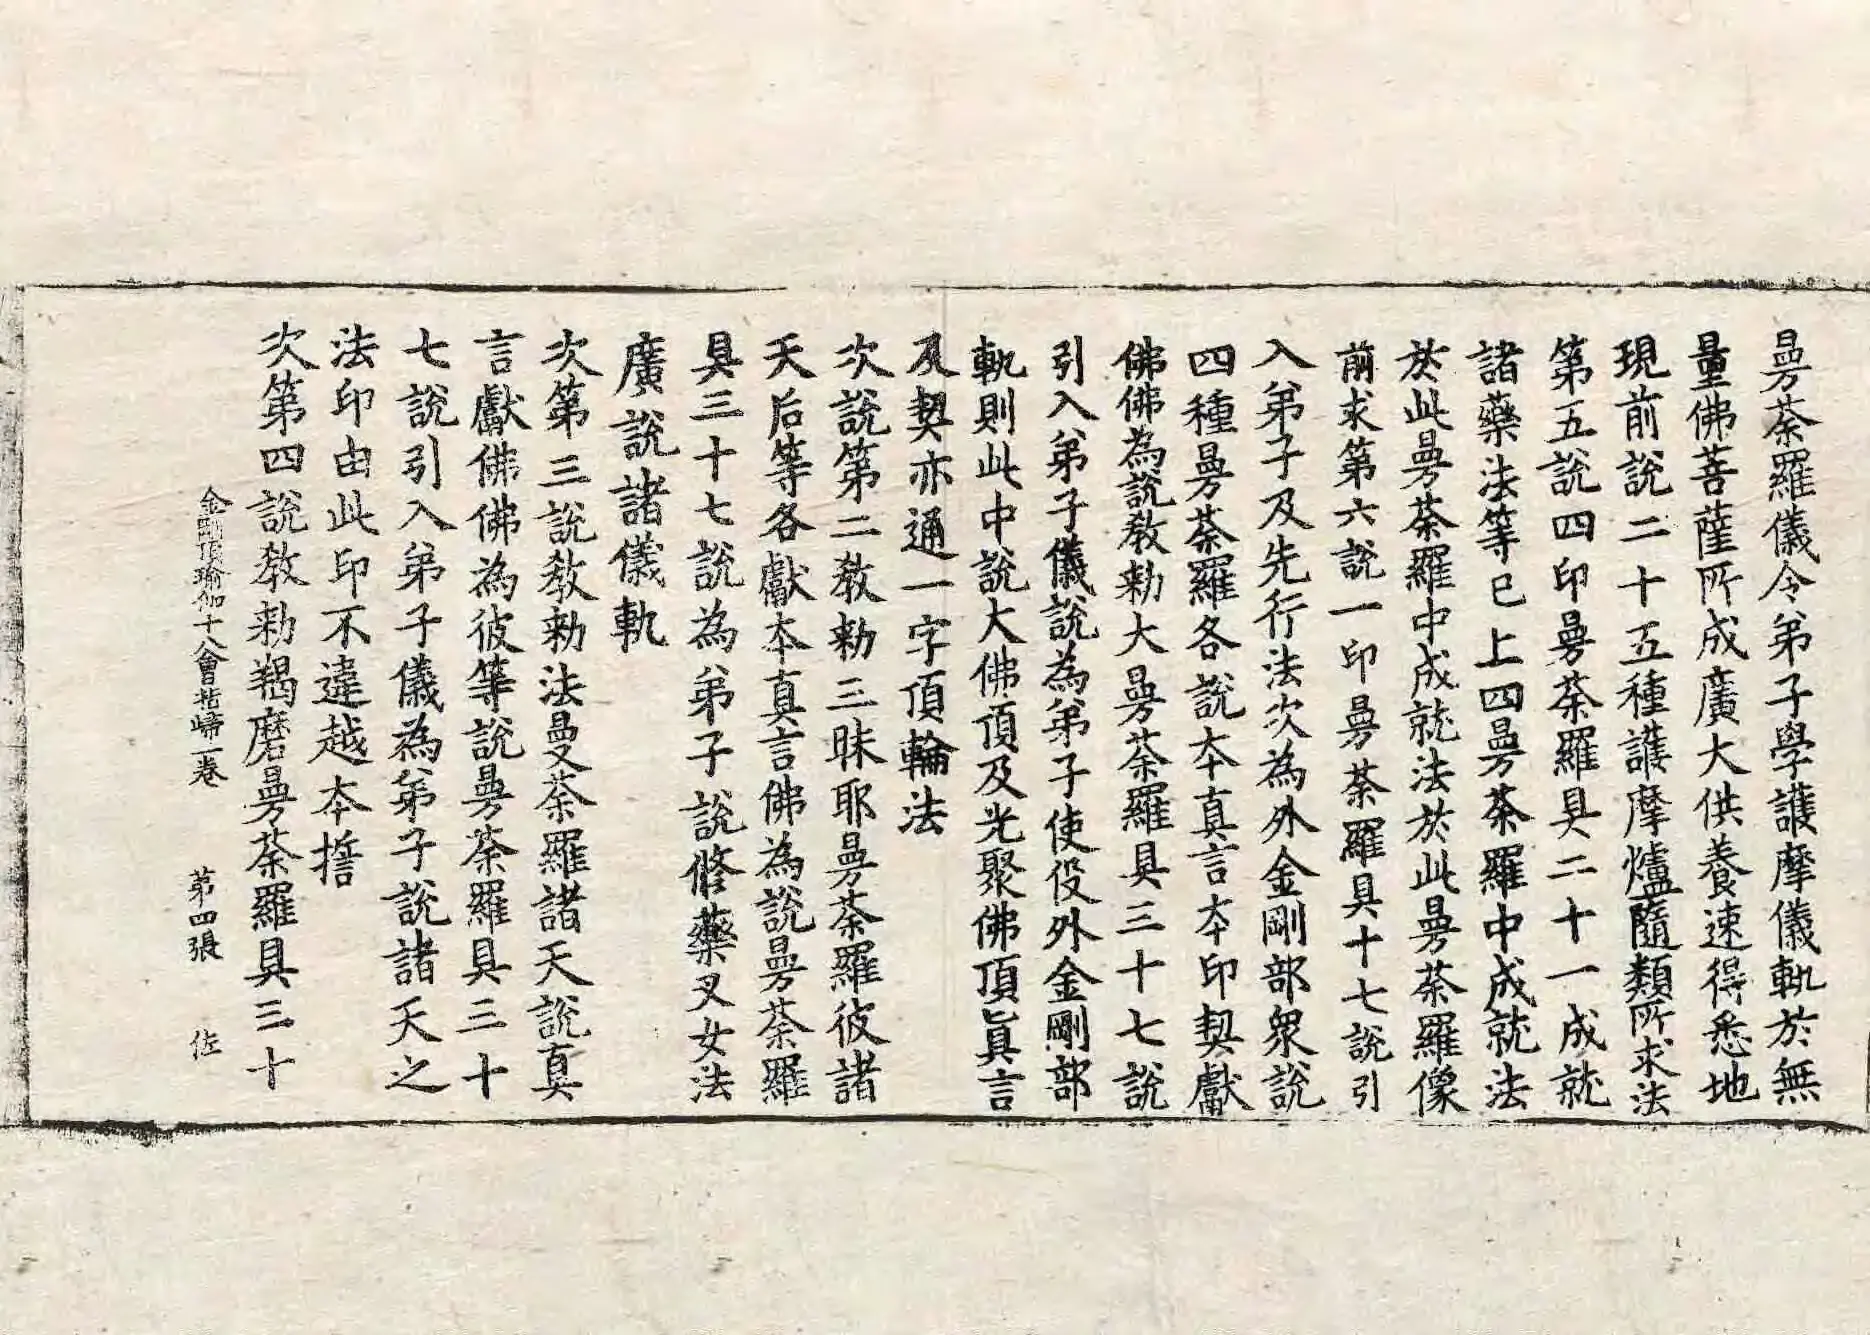 曼荼羅儀令弟子學護摩儀軌於無
量佛菩薩所成廣大供養速得悉地
現前說二十五種護摩爐隨類所求法
第五說四印曼荼羅具二十一成就
諸藥法等已上四曼荼羅中成就法
於此曼荼羅中成就法於此曼荼羅像
前求第六說一印曼荼羅具十七說引
入弟子及先行法次為外金剛部衆說
四種曼荼羅各說本真言本印契獻
佛佛為說教勅大曼荼羅具三十七說
引入弟子儀說為弟子使役外金剛部
軌則此中說大佛頂及光聚佛頂真言
及契亦通一字頂輪法
次說第二教勅三昧耶曼荼羅彼諸
天后等各獻本真言佛為說曼荼羅
具三十七說為弟子說修藥叉女法
廣說諸儀軌
次第三說教勅法曼荼羅諸天說真
言獻佛佛為彼等說曼荼羅具三十
七說引入弟子儀為弟子說諸天之
法印由此印不違越本誓
金剛頂瑜伽十八會指歸一卷 第四張 佐
次第四說教勅羯磨曼荼羅具三十